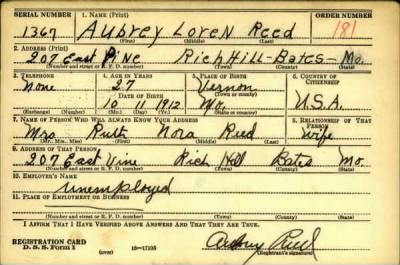 SERIAL NUMBER 1. NAME (Print) ORDER NUMBER
1367 Aubrey Loren Reed 181
(First) (Middle) (Last)
2. ADDRESS (Print)
207 East Pine Rich Hill - Bates - Mo.
(Number and street or R. F. D. number) (Town) (County) (State)
3. TELEPHONE 4. AGE IN YEARS 5. PLACE OF BIRTH 6. COUNTRY OF CITIZENSHIP
None 27 Vernon
DATE OF BIRTH (Town or county)
10 11 1912 Mo. U.S.A.
(Exchange) (Number) (Mo.) (Day) (Yr.) (State or country)
7. NAME OF PERSON WHO WILL ALWAYS KNOW YOUR ADDRESS 8. RELATIONSHIP OF THAT PERSON
Mrs Ruth Nora Reed Wife
(Mr., Mrs., Miss) (First) (Middle) (Last)
9. ADDRESS OF THAT PERSON
207 East Vine Rich Hill Bates Mo
(Number and street or R. F. D. number) (Town) (County) (State)
10. EMPLOYER'S NAME
unemployed
11. PLACE OF EMPLOYMENT OR BUSINESS
(Number and street or R. F. D. number) (Town) (County) (State)
I AFFIRM THAT I HAVE VERIFIED ABOVE ANSWERS AND THAT THEY ARE TRUE.
REGISTRATION CARD
D. S. S. Form 1 (over) 16—17105 Aubrey Reed
(Registrant's signature)